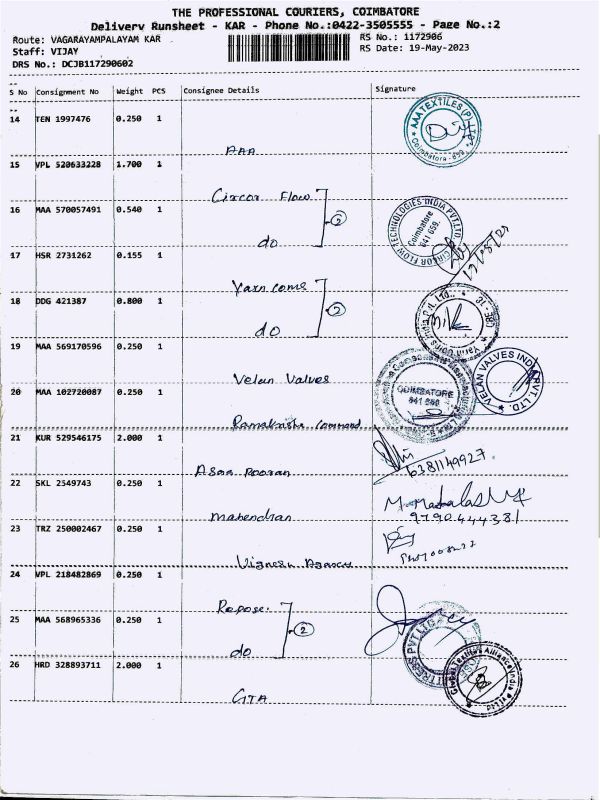 THE PROFESSIONAL COURIERS, COIMBATORE
Delivery Runsheet - KAR - Phone No.:0422-3505555 - Page No.:2
Route: VAGARAYAMPALAYAM KAR
RS No.: 1172906
Staff: VIJAY
RS Date: 19-May-2023
DRS No.: DCJB117290602
S No Consignment No Weight PCS Consignee Details Signature
14 TEN 1997476 0.250 1
AAA
AAA TEXTILES (P) LTD.
Coimbatore - 659
15 VPL 520633228 1.700 1
Circor Flow
16 MAA 570057491 0.540 1
do
2
CIRCOR FLOW TECHNOLOGIES INDIA PVT.LTD.
Coimbatore
641 659.
17 HSR 2731262 0.155 1
Yarn come
18 DDG 421387 0.800 1
do
2
19 MAA 569170596 0.250 1
Velan Valves
VELAN VALVES INDIA PVT. LTD.
20 MAA 102720087 0.250 1
COIMBATORE
641 659
21 KUR 529546175 2.000 1
6381149927
22 SKL 2549743 0.250 1
Mahendran
9790444381
23 TRZ 250002467 0.250 1
Vignesh
24 VPL 218482869 0.250 1
Repose.
25 MAA 568965336 0.250 1
do
2
26 HRD 328893711 2.000 1
GTA
Global Textiles Alliance India Pvt Ltd